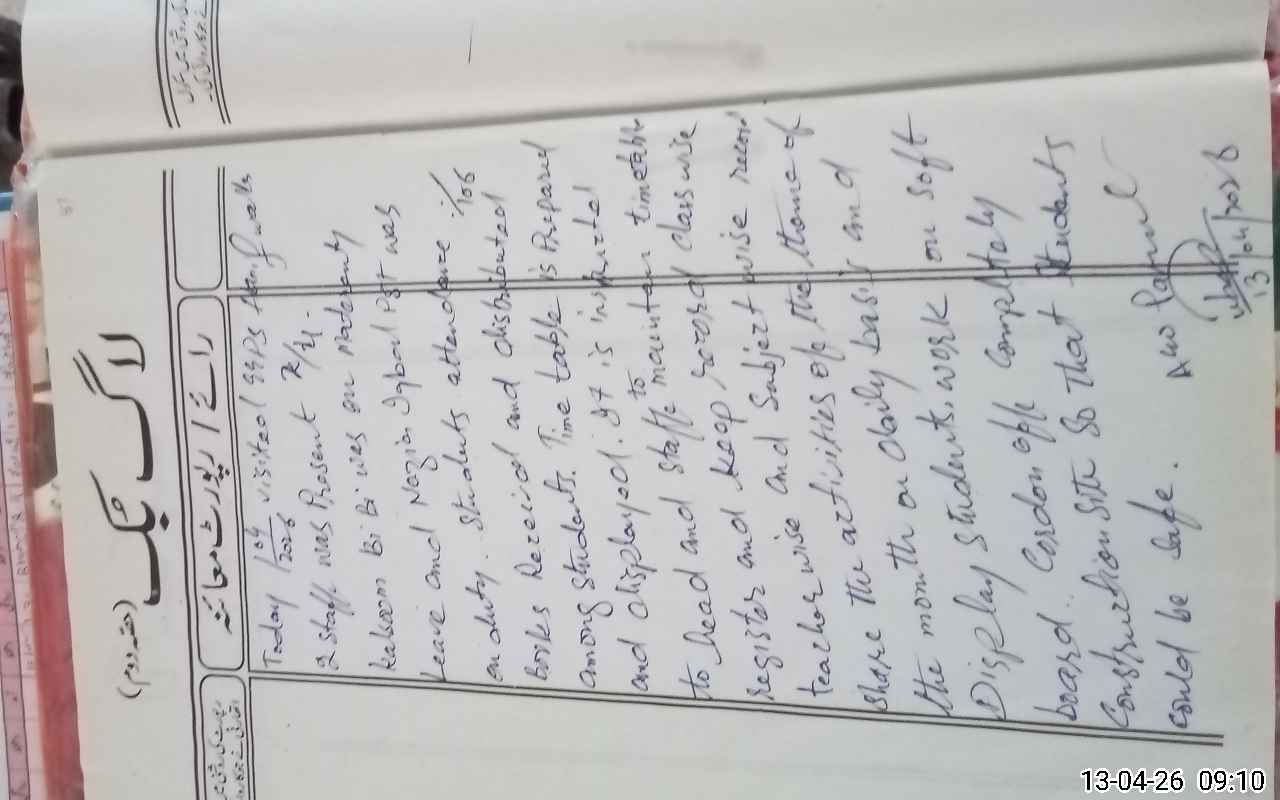 لاگ بک
(حصہ دوم)
رائے / رپورٹ معائنہ
Today 1/04/2026 visited GGPS
2 staff was Present 2/4.
Kalsoom Bi Bi was on Maternity
Leave and Nazia Iqbal Pst was
on duty. Students attendance /106
Books Received and distributed
among students. Time table is Prepared
and displayed. It is instructed
to head and staff to maintain timetable
register and keep record classwise
teacherwise and Subject wise record
share the activities of the theme of
the month on daily basis and
Display students work on soft
board. Cordon off completely
Construction site so that students
could be safe. AWO
13/04/2026
13-04-26 09:10